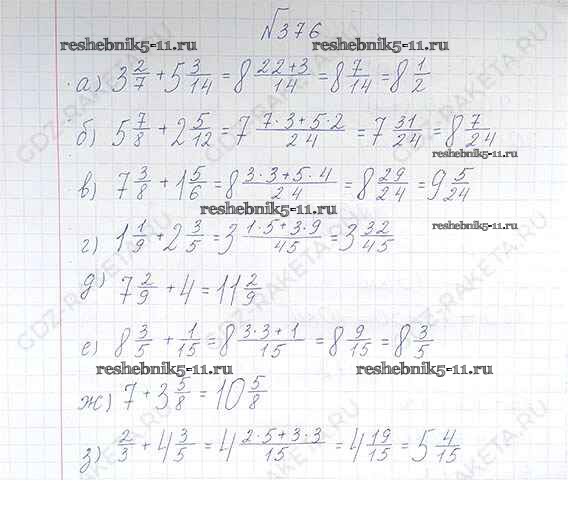 №376
reshebnik5-11.ru
а) 3 2/7 + 5 3/14 = 8 (22+3)/14 = 8 7/14 = 8 1/2
б) 5 7/8 + 2 5/12 = 7 (7·3+5·2)/24 = 7 31/24 = 8 7/24
reshebnik5-11.ru
в) 7 3/8 + 1 5/6 = 8 (3·3+5·4)/24 = 8 29/24 = 9 5/24
reshebnik5-11.ru
reshebnik5-11.ru
г) 1 1/9 + 2 3/5 = 3 (1·5+3·9)/45 = 3 32/45
д) 7 2/9 + 4 = 11 2/9
reshebnik5-11.ru
е) 8 3/5 + 1/15 = 8 (3·3+1)/15 = 8 9/15 = 8 3/5
reshebnik5-11.ru
reshebnik5-11.ru
ж) 7 + 3 5/8 = 10 5/8
з) 2/3 + 4 3/5 = 4 (2·5+3·3)/15 = 4 19/15 = 5 4/15
GDZ-RAKETA.RU
GDZ-RAKETA.RU
GDZ-RAKETA.RU
GDZ-RAKETA.RU